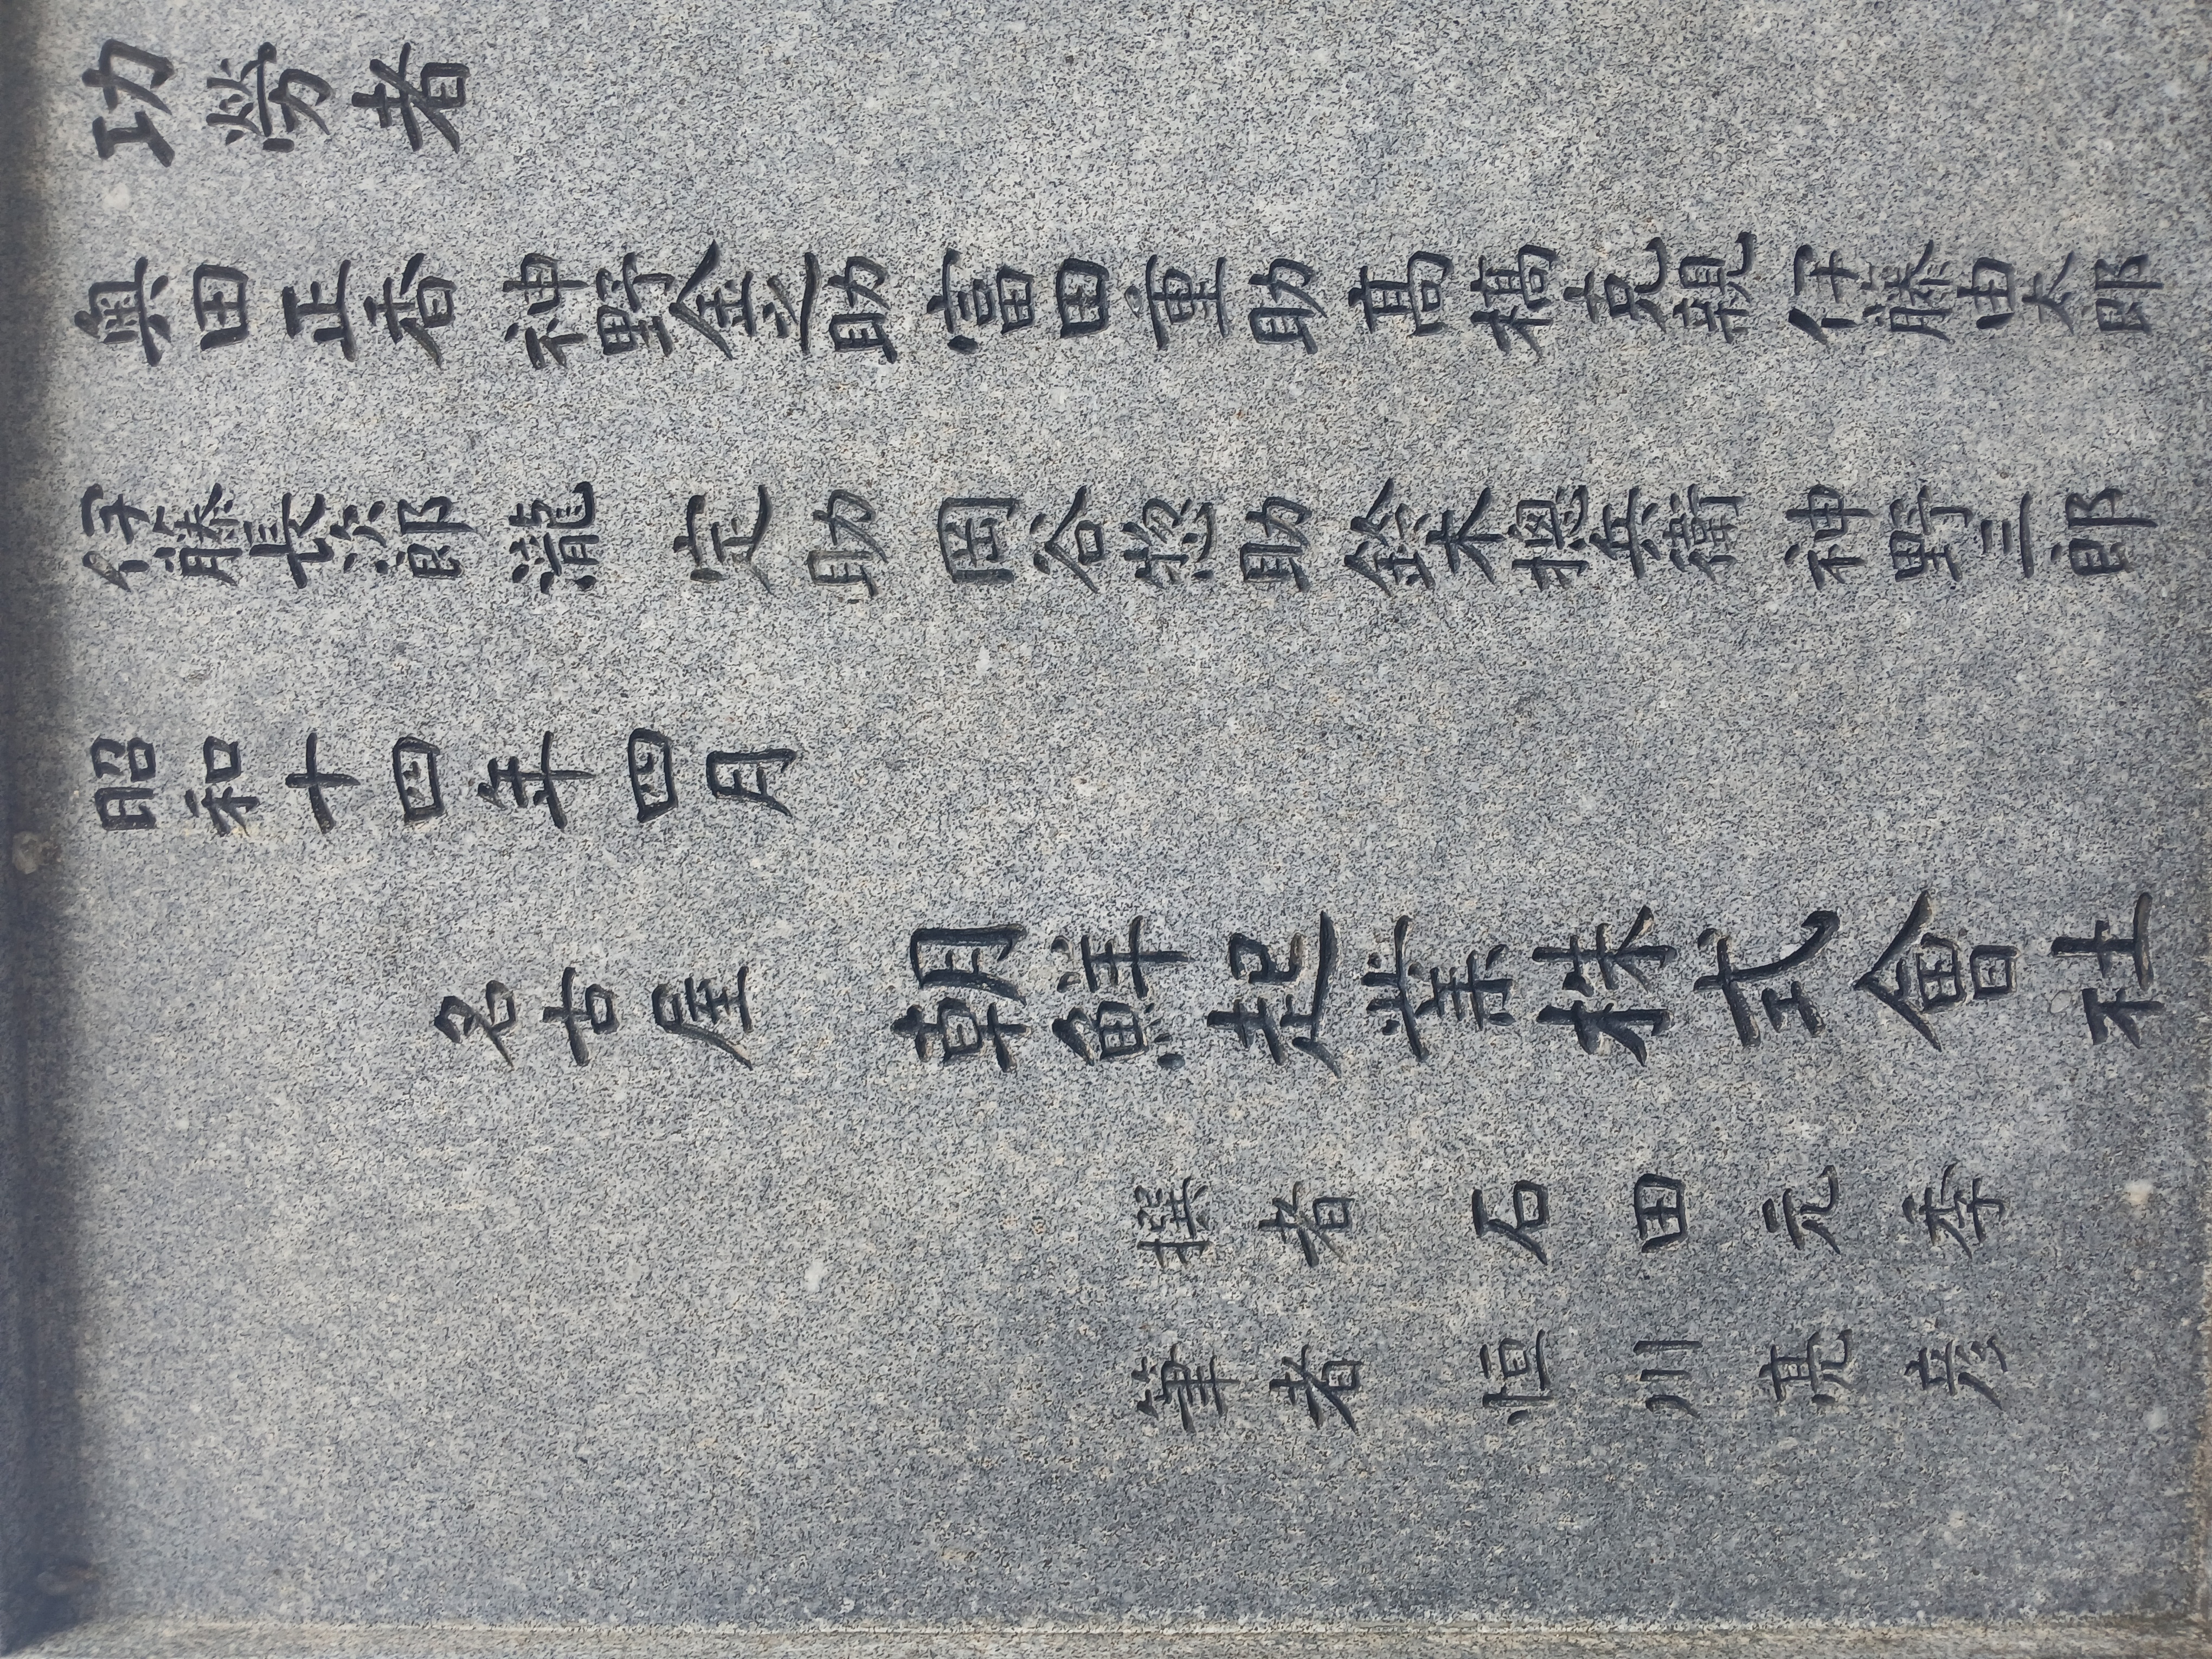 功勞者
奧田正香 神野金之助 富田重助 髙橋克親 伊藤由太郎
伊藤長次郎 瀧定助 岡谷惣助 鈴木摠兵衛 神野三郎
昭和十四年四月
名古屋 朝鮮起業株式會社
撰者 石田元季
筆者 恒川亮彦